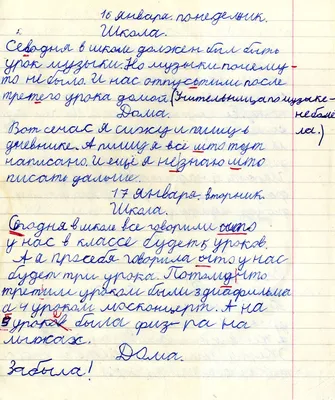 16 января понедельник.
Школа.
Севодня в школе должен был быть
урок музыки. Но музыки почему-
то не было. И нас отпустили после
третего урока домой (Учительница по музыке-
Дома. не была
Вот сечас я сижу и пишу в ла.)
дневнике. А пишу я всё што тут
написано. И ещё я незнаю што
писать дальше.
17 января, вторник.
Школа.
Сегодня в школе все говорили што
у нас в классе будет 5 уроков.
А я просебя говорила што у нас
будет три урока. Потомушто
третим уроком были 3 диафильма
а 4 уроком москонцерт. А на
5 уроке была физ-ра на
лыжах.
Дома.
Забыла!